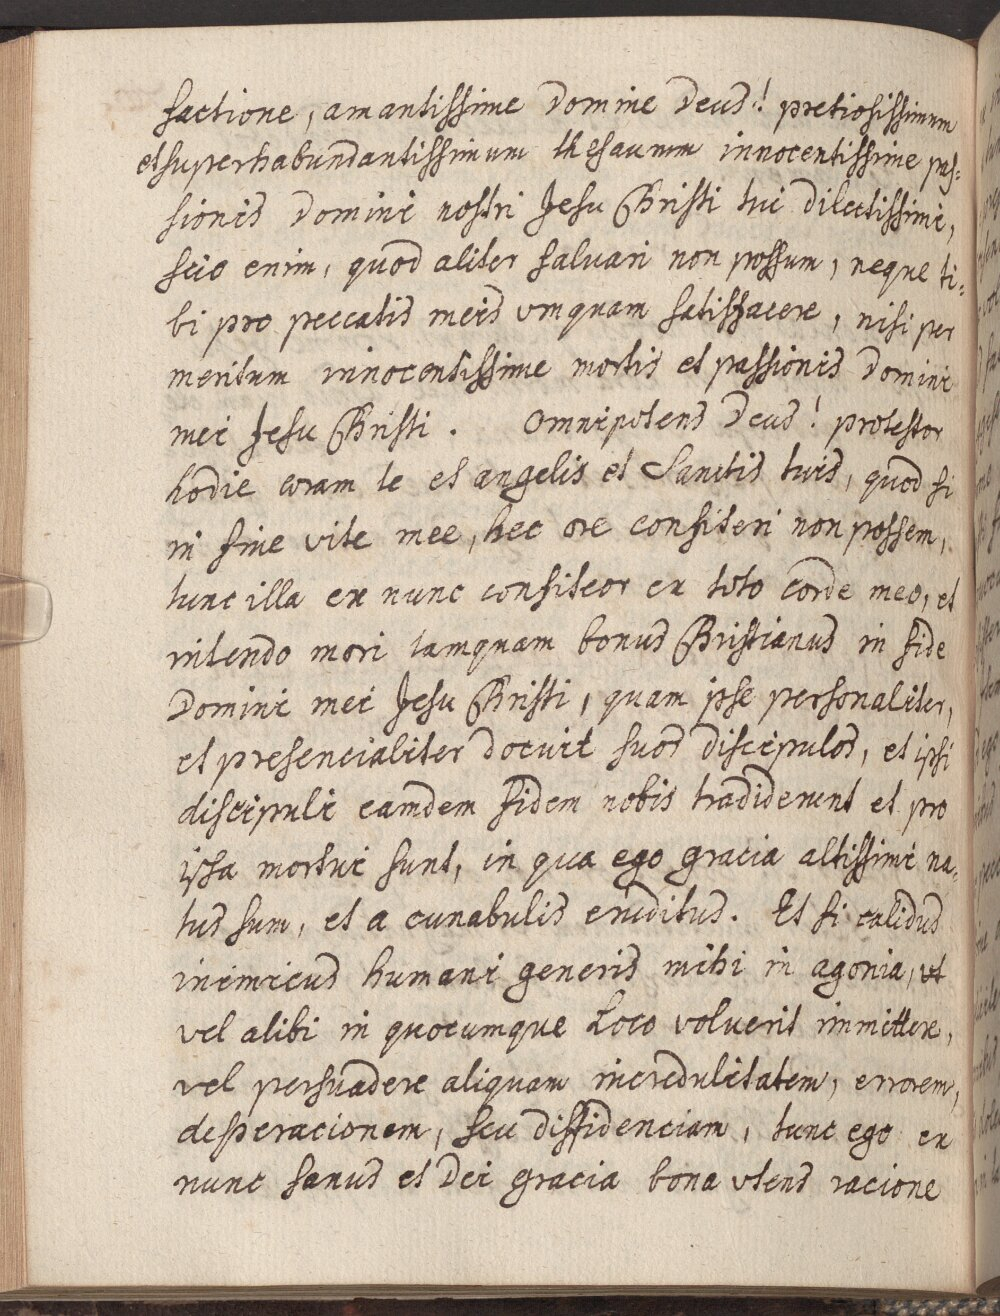 factione, amantissime Domine Deus! pretiosissimum
et superhabundantissimum thesaurum innocentissime pas-
sionis Domini nostri Jesu Christi tui dilectissimi,
scio enim, quod aliter salvari non possum, neque ti-
bi pro peccatis meis vmquam satisfacere, nisi per
meritum innocentissime mortis et passionis Domini
mei Jesu Christi. Omnipotens Deus! protestor
hodie coram te et angelis et Sanctis tuis, quod si
in fine vite mee, hec ore confiteri non possem,
tunc illa ex nunc confiteor ex toto corde meo, et
intendo mori tamquam bonus Christianus in fide
Domini mei Jesu Christi, quam ipse personaliter,
et presencialiter docuit suos discipulos, et ipsi
discipuli eamdem fidem nobis tradiderunt et pro
ipsa mortui sunt, in qua ego gracia altissimi na-
tus sum, et a cunabulis eruditus. Et si calidus
inimicus humani generis mihi in agonia, vt
vel alibi in quocumque loco voluerit immittere,
vel persuadere aliquam incredulitatem, errorem,
desperacionem, seu diffidenciam, tunc ego ex
nunc sanus et Dei gracia bona vtens racione